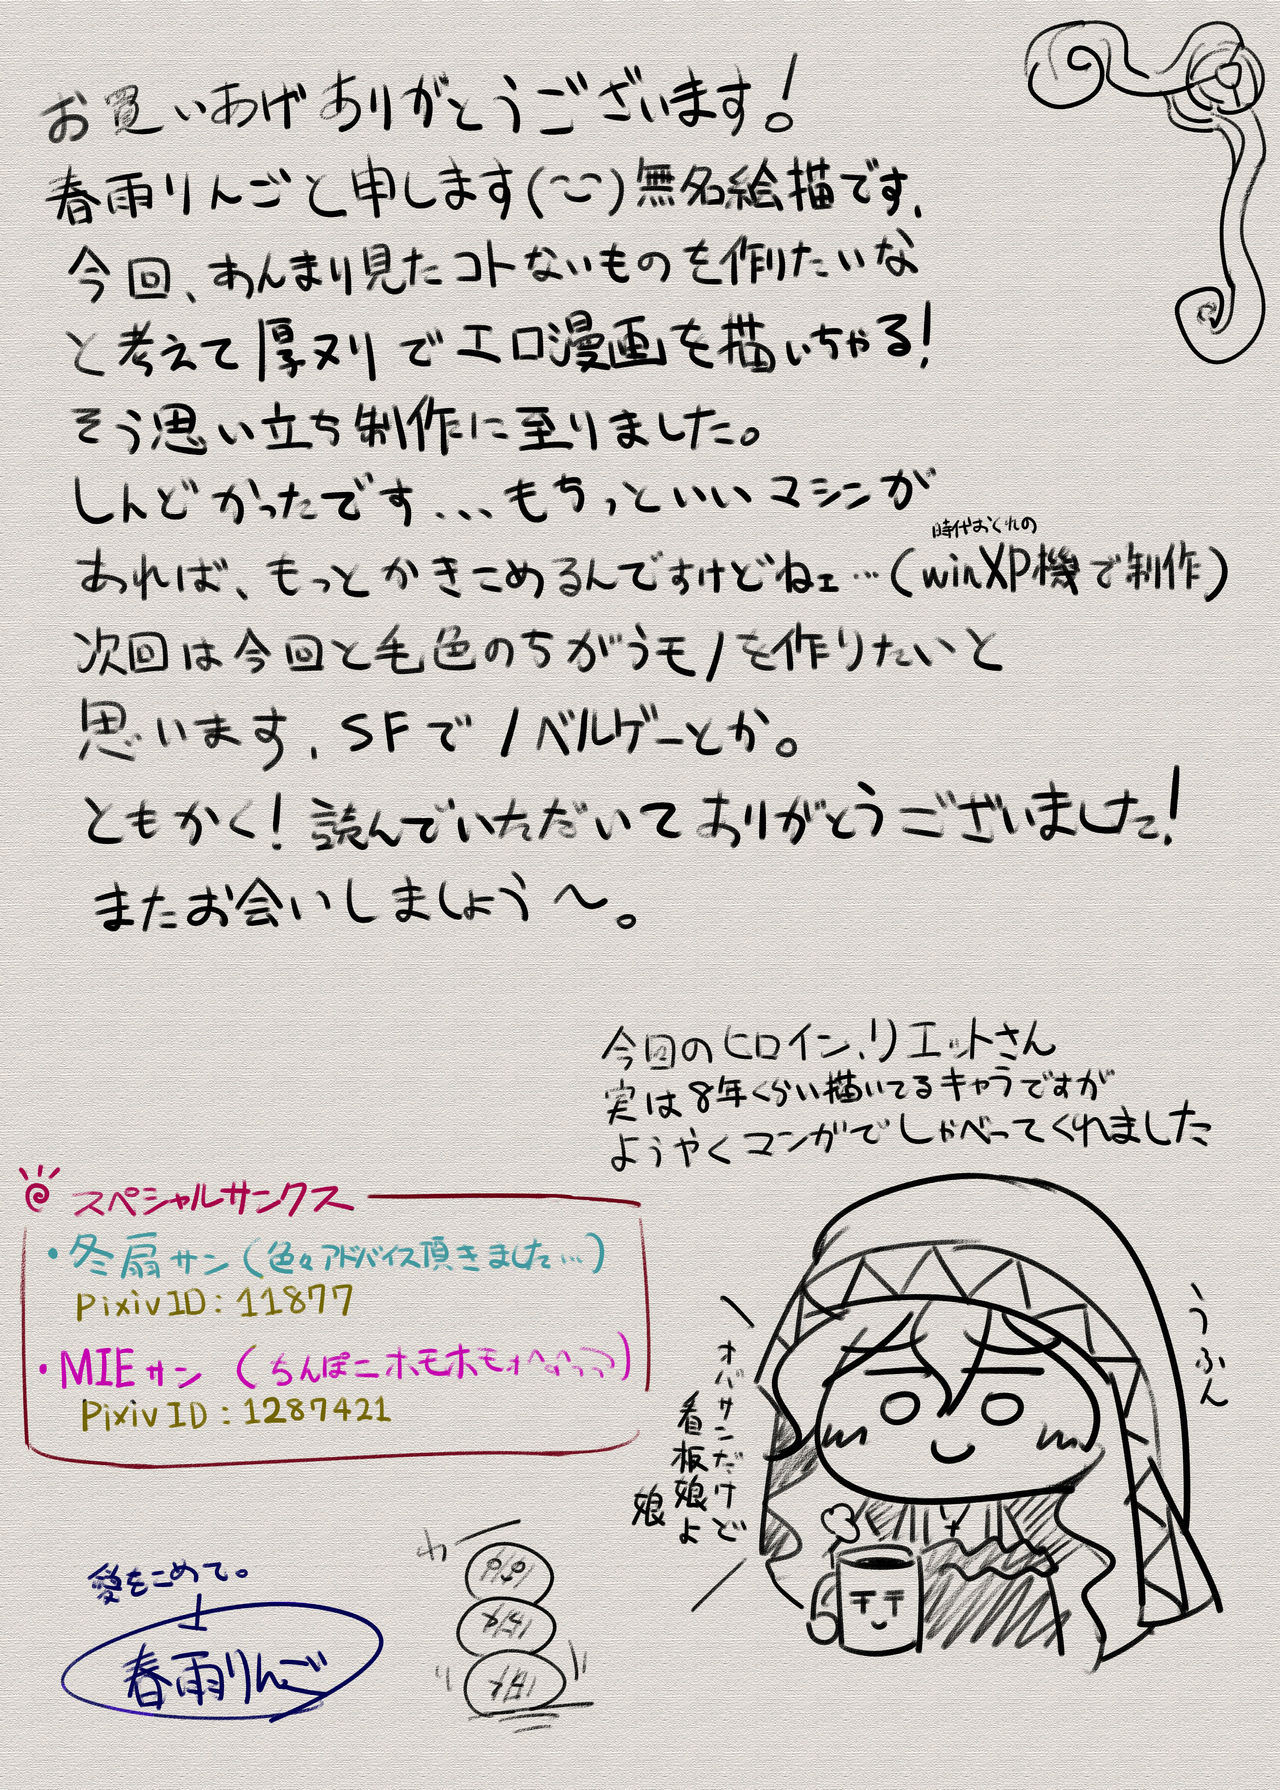 お買いあげありがとうございます！
春雨りんごと申します(^^)無名絵描です、
今回、あんまり見たコトないものを作りたいな
と考えて厚ヌリでエロ漫画を描いちゃる！
そう思い立ち制作に至りました。
しんどかったです...もちっといいマシンが
あれば、もっとかきこめるんですけどねェ…(winXP機で制作)
時代おくれの
次回は今回と毛色のちがうモノを作りたいと
思います、SFでノベルゲーとか。
ともかく！読んでいただいてありがとうございました！
またお会いしましょう〜。
今回のヒロイン、リエットさん
実は8年くらい描いてるキャラですが
ようやくマンガでしゃべってくれました
スペシャルサンクス
・冬扇サン(色々アドバイス頂きました…)
pixivID:11877
・MIEサン(ちんぽこホモホモ
pixivID:1287421
うふん
オバサンだけど
看板娘よ
娘
愛をこめて。
春雨りんご